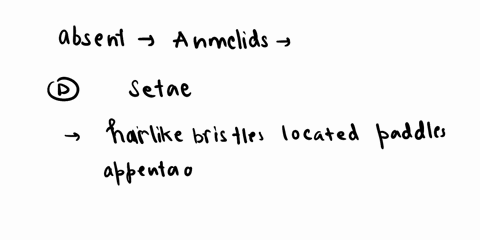 absent → Anmelids →
Ⓓ setae
→ hairlike bristles located paddles
appentao